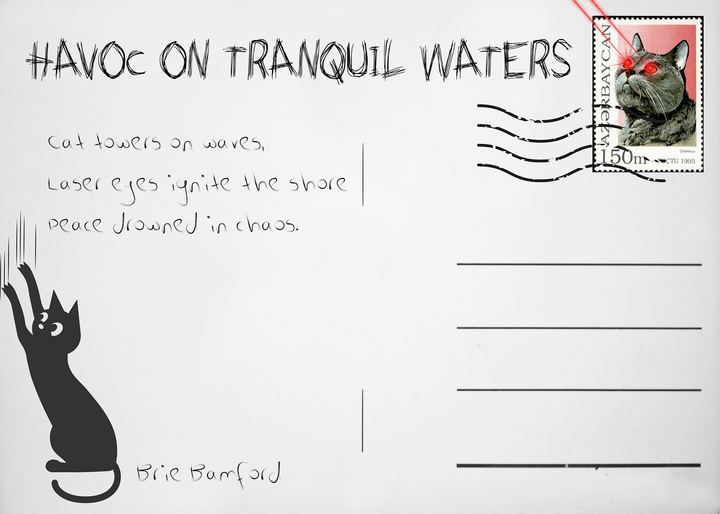 HAVOC ON TRANQUIL WATERS
Cat towers on waves,
Laser eyes ignite the shore
Peace drowned in chaos.
Brie Bamford
AZƏRBAYCAN
150m
Chartreux
POÇTU 1995